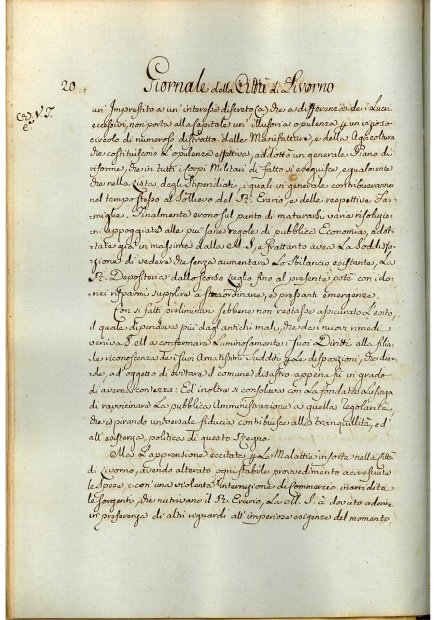 20 Giornale della Città di Livorno
un' Imprestito a un' interesse discreto (a) che a differenza de i Lucri
eccessivi, non porta alla Capitale un' illusoria opulenza, un ozioso
circolo di numerose distratto dalle Manifatture, e della Agricoltura
che costituiscono l'opulenza effettiva, adottò un generale Piano di
riforme, che in tutti i Corpi Militari di fatto si eseguisce, egualmente
che nella Lista degli Stipendiati, i quali in generale contribuiranno
nel tempo stesso al Sollievo del R. Erario, e delle respettive Fa-
miglie. Finalmente erono sul punto di maturarsi varie risoluzio-
ni appoggiate alle più sane regole di pubblica Economia, adot-
tate già in massima dalla M. S., e frattanto avea la Soddisfa-
zione di vedere che senza aumentare lo Sbilancio esistente, la
R. Depositeria dallo scorso Luglio fino al presente potè con ido-
nei risparmi supplire a straordinarie, e pressanti emergenze.
Con si fatti preliminari sebbene non restasse assicurato l'esito,
il quale dipendeva più dagli antichi mali, che da i nuovi rimedi
veniva S. M. a confermare luminosamente i suoi Diritti alla filia-
le riconoscenza de i suoi Amatissimi Sudditi le disposizioni, che dic-
de, ad oggetto di evitare il comune disastro appena fù in grado
di averne contezza: Ed inoltre si consolava con la fondata Lusinga
di ravvicinare la pubblica Amministrazione a quella regolarità,
che ispirando universale fiducia contribuisce alla tranquillità, ed
all' esistenza politica di questo Regno.
Ma l'apprensione eccitata le Malattie insorte nella Città
di Livorno, avendo alterato ogni stabile provvedimento accresciute
le Spese, e con una violenta interruzione di Commercio inaridite
le sorgenti, che nutrivano il R. Erario, La M. S. à dovuto aderire
in preferenza di altri riguardi all' imperiose esigenze del momento,